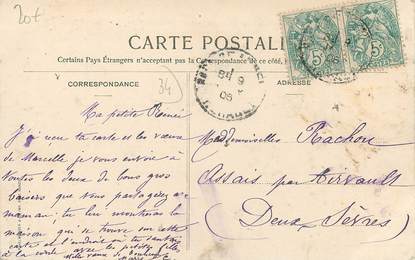 20+
CARTE POSTALE
Certains Pays Étrangers n'acceptant pas la Correspondance de ce côté,
CORRESPONDANCE
ADRESSE
34
5c
5c
Ma petite Renée
J'ai reçu ta carte et les vœux
de Marcelle, je vous envoie à
toutes les deux de bons gros
baisers que vous partagerez avec
maman, tu lui montreras la
maison qui se trouve sur cette
carte
à la corde avec les petites filles
Mille vœux de bonheur
Marie
Mesdemoiselles Rachou
Assais par Airvault
(Deux Sèvres)